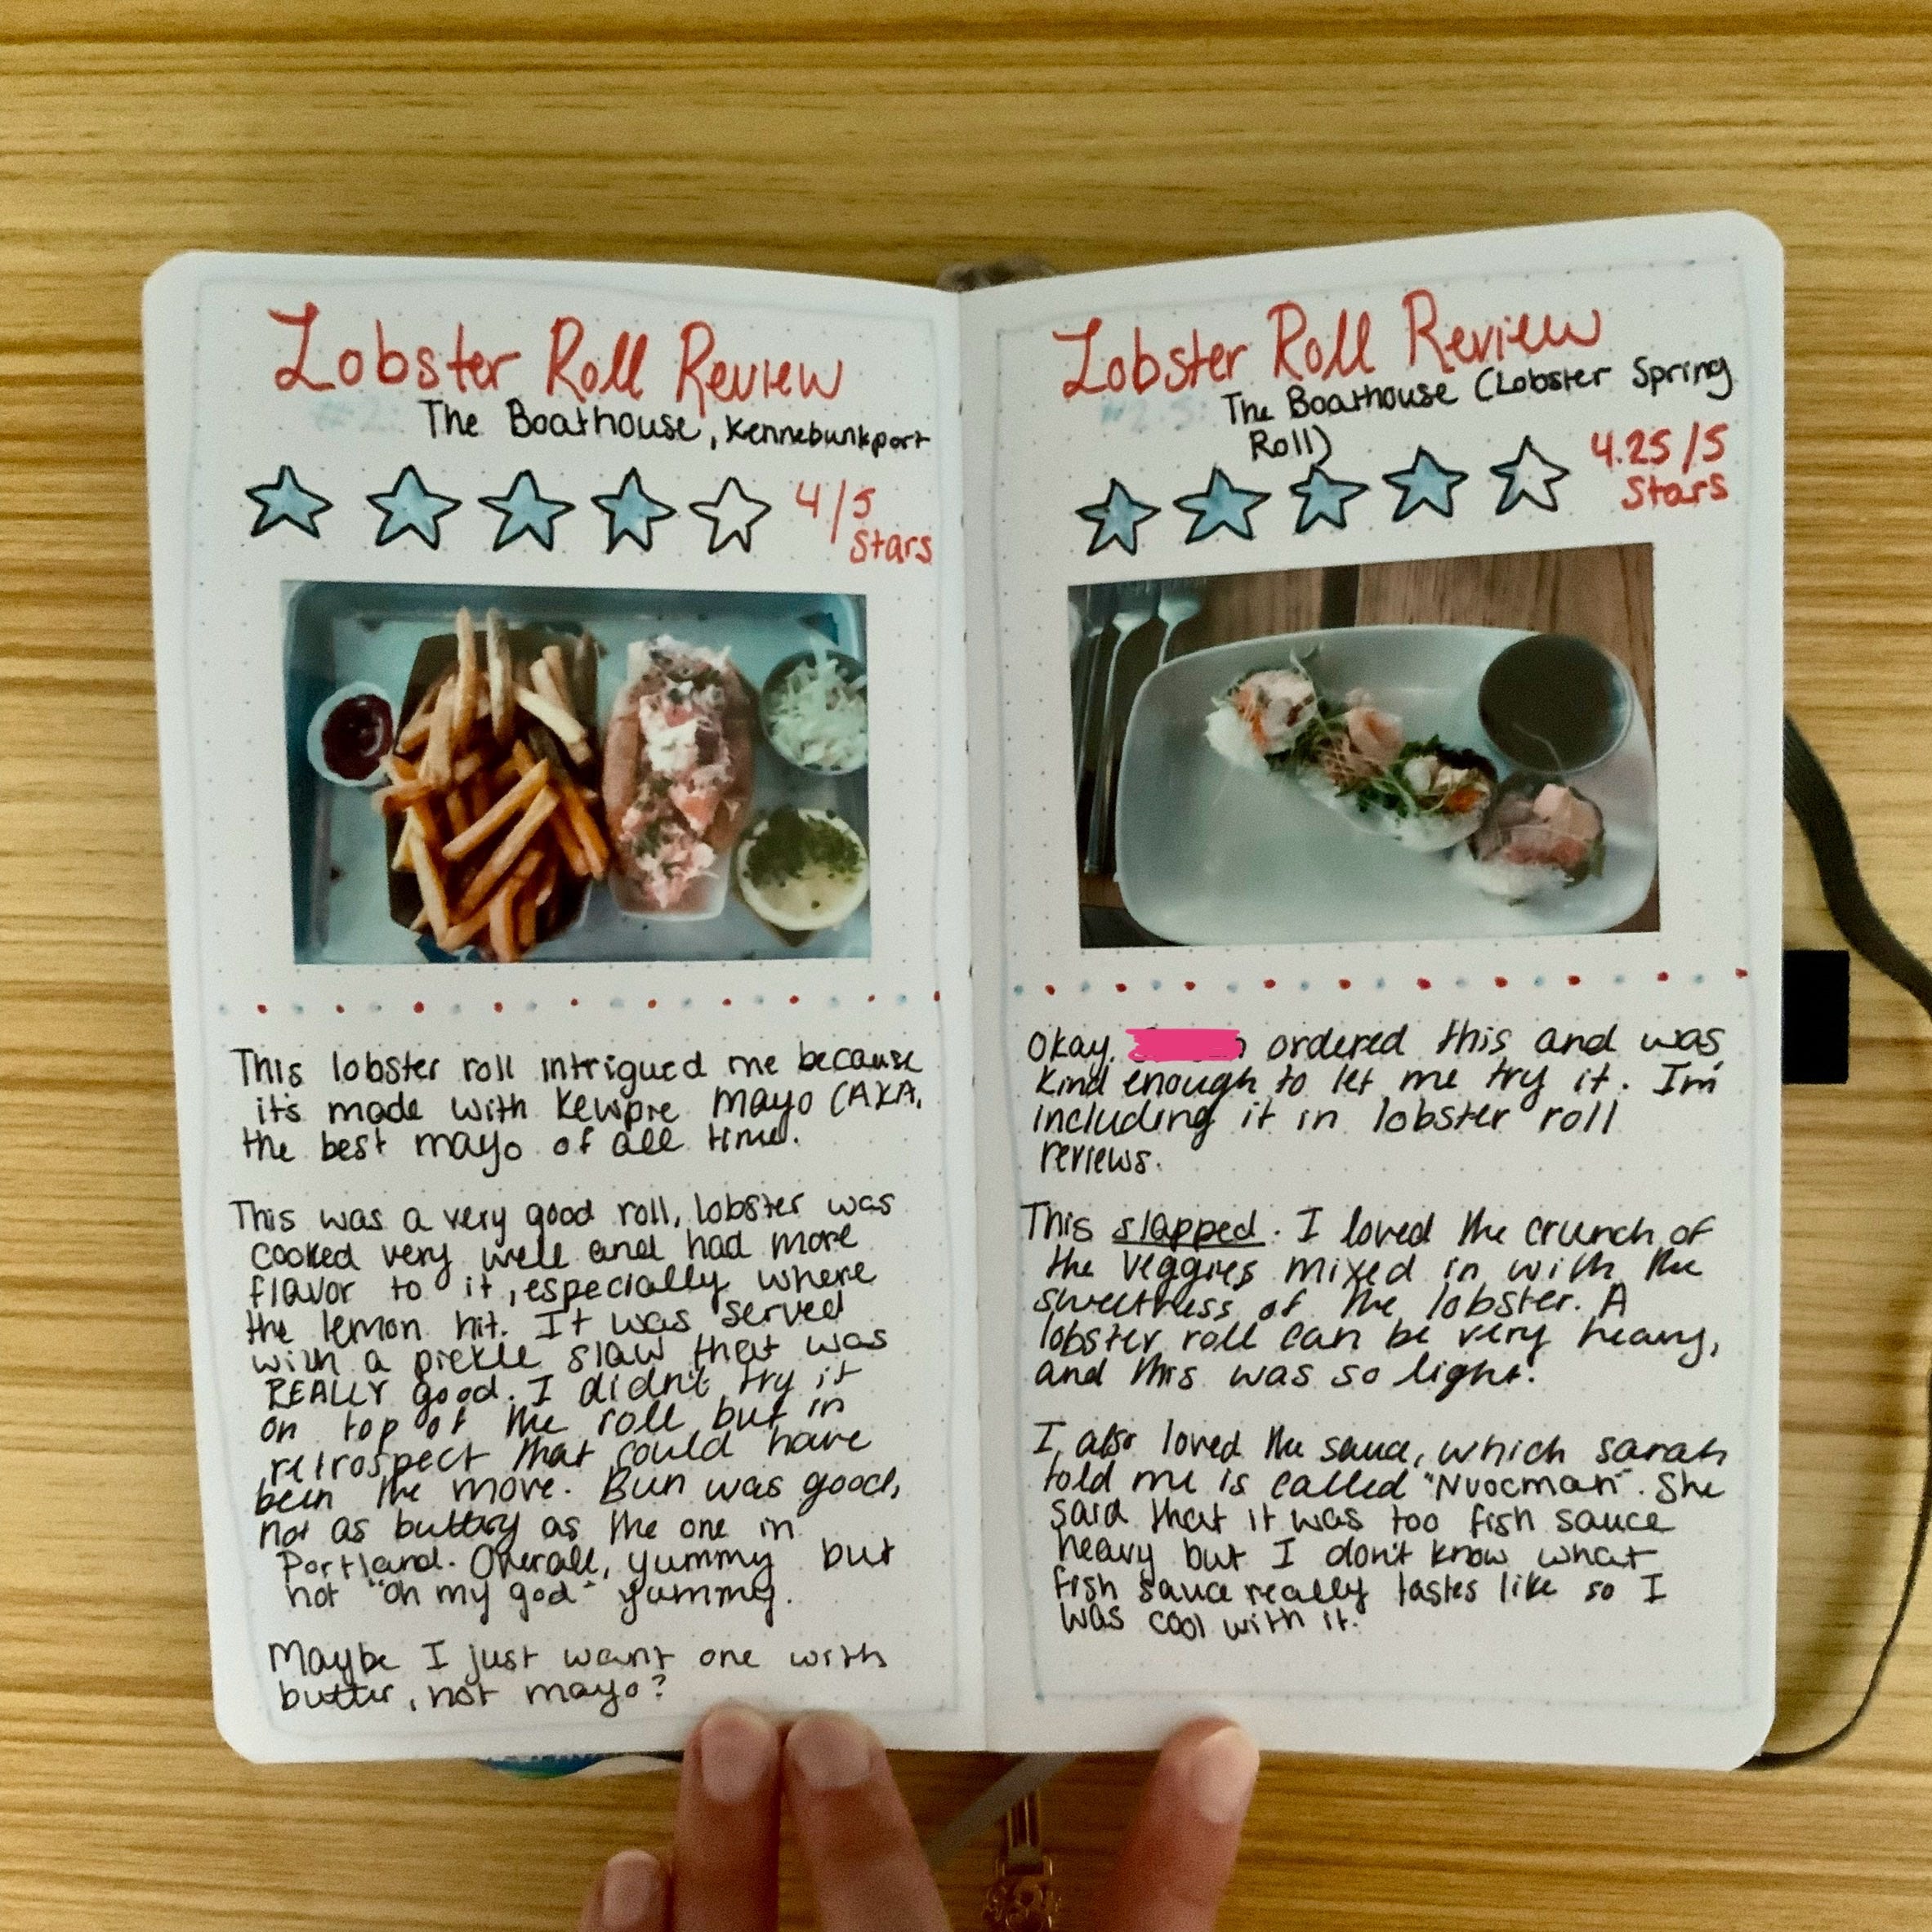 Lobster Roll Review
#2:
The Boathouse, Kennebunkport
4/5
Stars
This lobster roll intrigued me because
it's made with Kewpie mayo (AKA,
the best mayo of all time.
This was a very good roll, lobster was
cooked very well and had more
flavor to it, especially where
the lemon hit. It was served
with a pickle slaw that was
REALLY good. I didn't try it
on top of the roll but in
retrospect that could have
been the move. Bun was good,
not as buttery as the one in
Portland. Overall, yummy but
not "oh my god" yummy.
Maybe I just want one with
butter, not mayo?
Lobster Roll Review
#2.5:
The Boathouse (Lobster Spring
Roll)
4.25/5
Stars
Okay. ordered this and was
kind enough to let me try it. I'm
including it in lobster roll
reviews.
This slapped. I loved the crunch of
the veggies mixed in with the
sweetness of the lobster. A
lobster roll can be very heavy,
and this was so light.
I also loved the sauce, which sarah
told me is called "Nuocman". She
said that it was too fish sauce
heavy but I don't know what
fish sauce really tastes like so I
was cool with it.